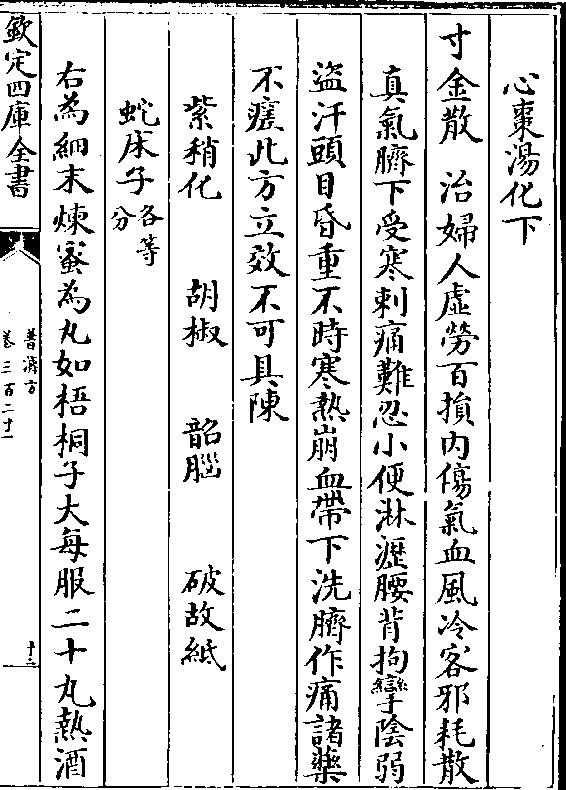 心棗湯化下
寸金散　治婦人虛勞百損内傷氣血風冷客邪耗散
真氣臍下受寒刺痛難忍小便淋瀝腰背拘攣陰弱
盜汗頭目昏重不時寒熱崩血帶下洗臍作痛諸藥
不瘥此方立效不可具陳
紫稍化　胡椒　韶腦　破故紙
蛇床子各等分
右為細末煉蜜為丸如梧桐子大每服二十丸熱酒
欽定四庫全書
普濟方
卷三百二十一
十二